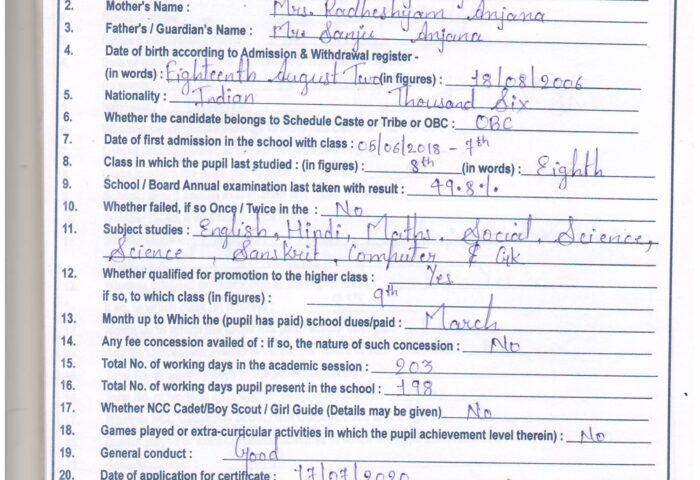 2. Mother's Name : Mrs. Radheshyam Anjana
3. Father's / Guardian's Name : Mrs Sanju Anjana
4. Date of birth according to Admission & Withdrawal register -
(in words) : Eighteenth August Two (in figures) : 18/08/2006
5. Nationality : Indian Thousand Six
6. Whether the candidate belongs to Schedule Caste or Tribe or OBC : OBC
7. Date of first admission in the school with class : 05/06/2018 - 7th
8. Class in which the pupil last studied : (in figures) : 8th (in words) : Eighth
9. School / Board Annual examination last taken with result : 49.8%
10. Whether failed, if so Once / Twice in the : No
11. Subject studies : English, Hindi, Maths, Social, Science,
Science, Sanskrit, Computer & Gk
12. Whether qualified for promotion to the higher class : Yes
if so, to which class (in figures) : 9th
13. Month up to Which the (pupil has paid) school dues/paid : March
14. Any fee concession availed of : if so, the nature of such concession : No
15. Total No. of working days in the academic session : 203
16. Total No. of working days pupil present in the school : 198
17. Whether NCC Cadet/Boy Scout / Girl Guide (Details may be given) No
18. Games played or extra-curricular activities in which the pupil achievement level therein) : No
19. General conduct : Good
20. Date of application for certificate : 17/07/2020